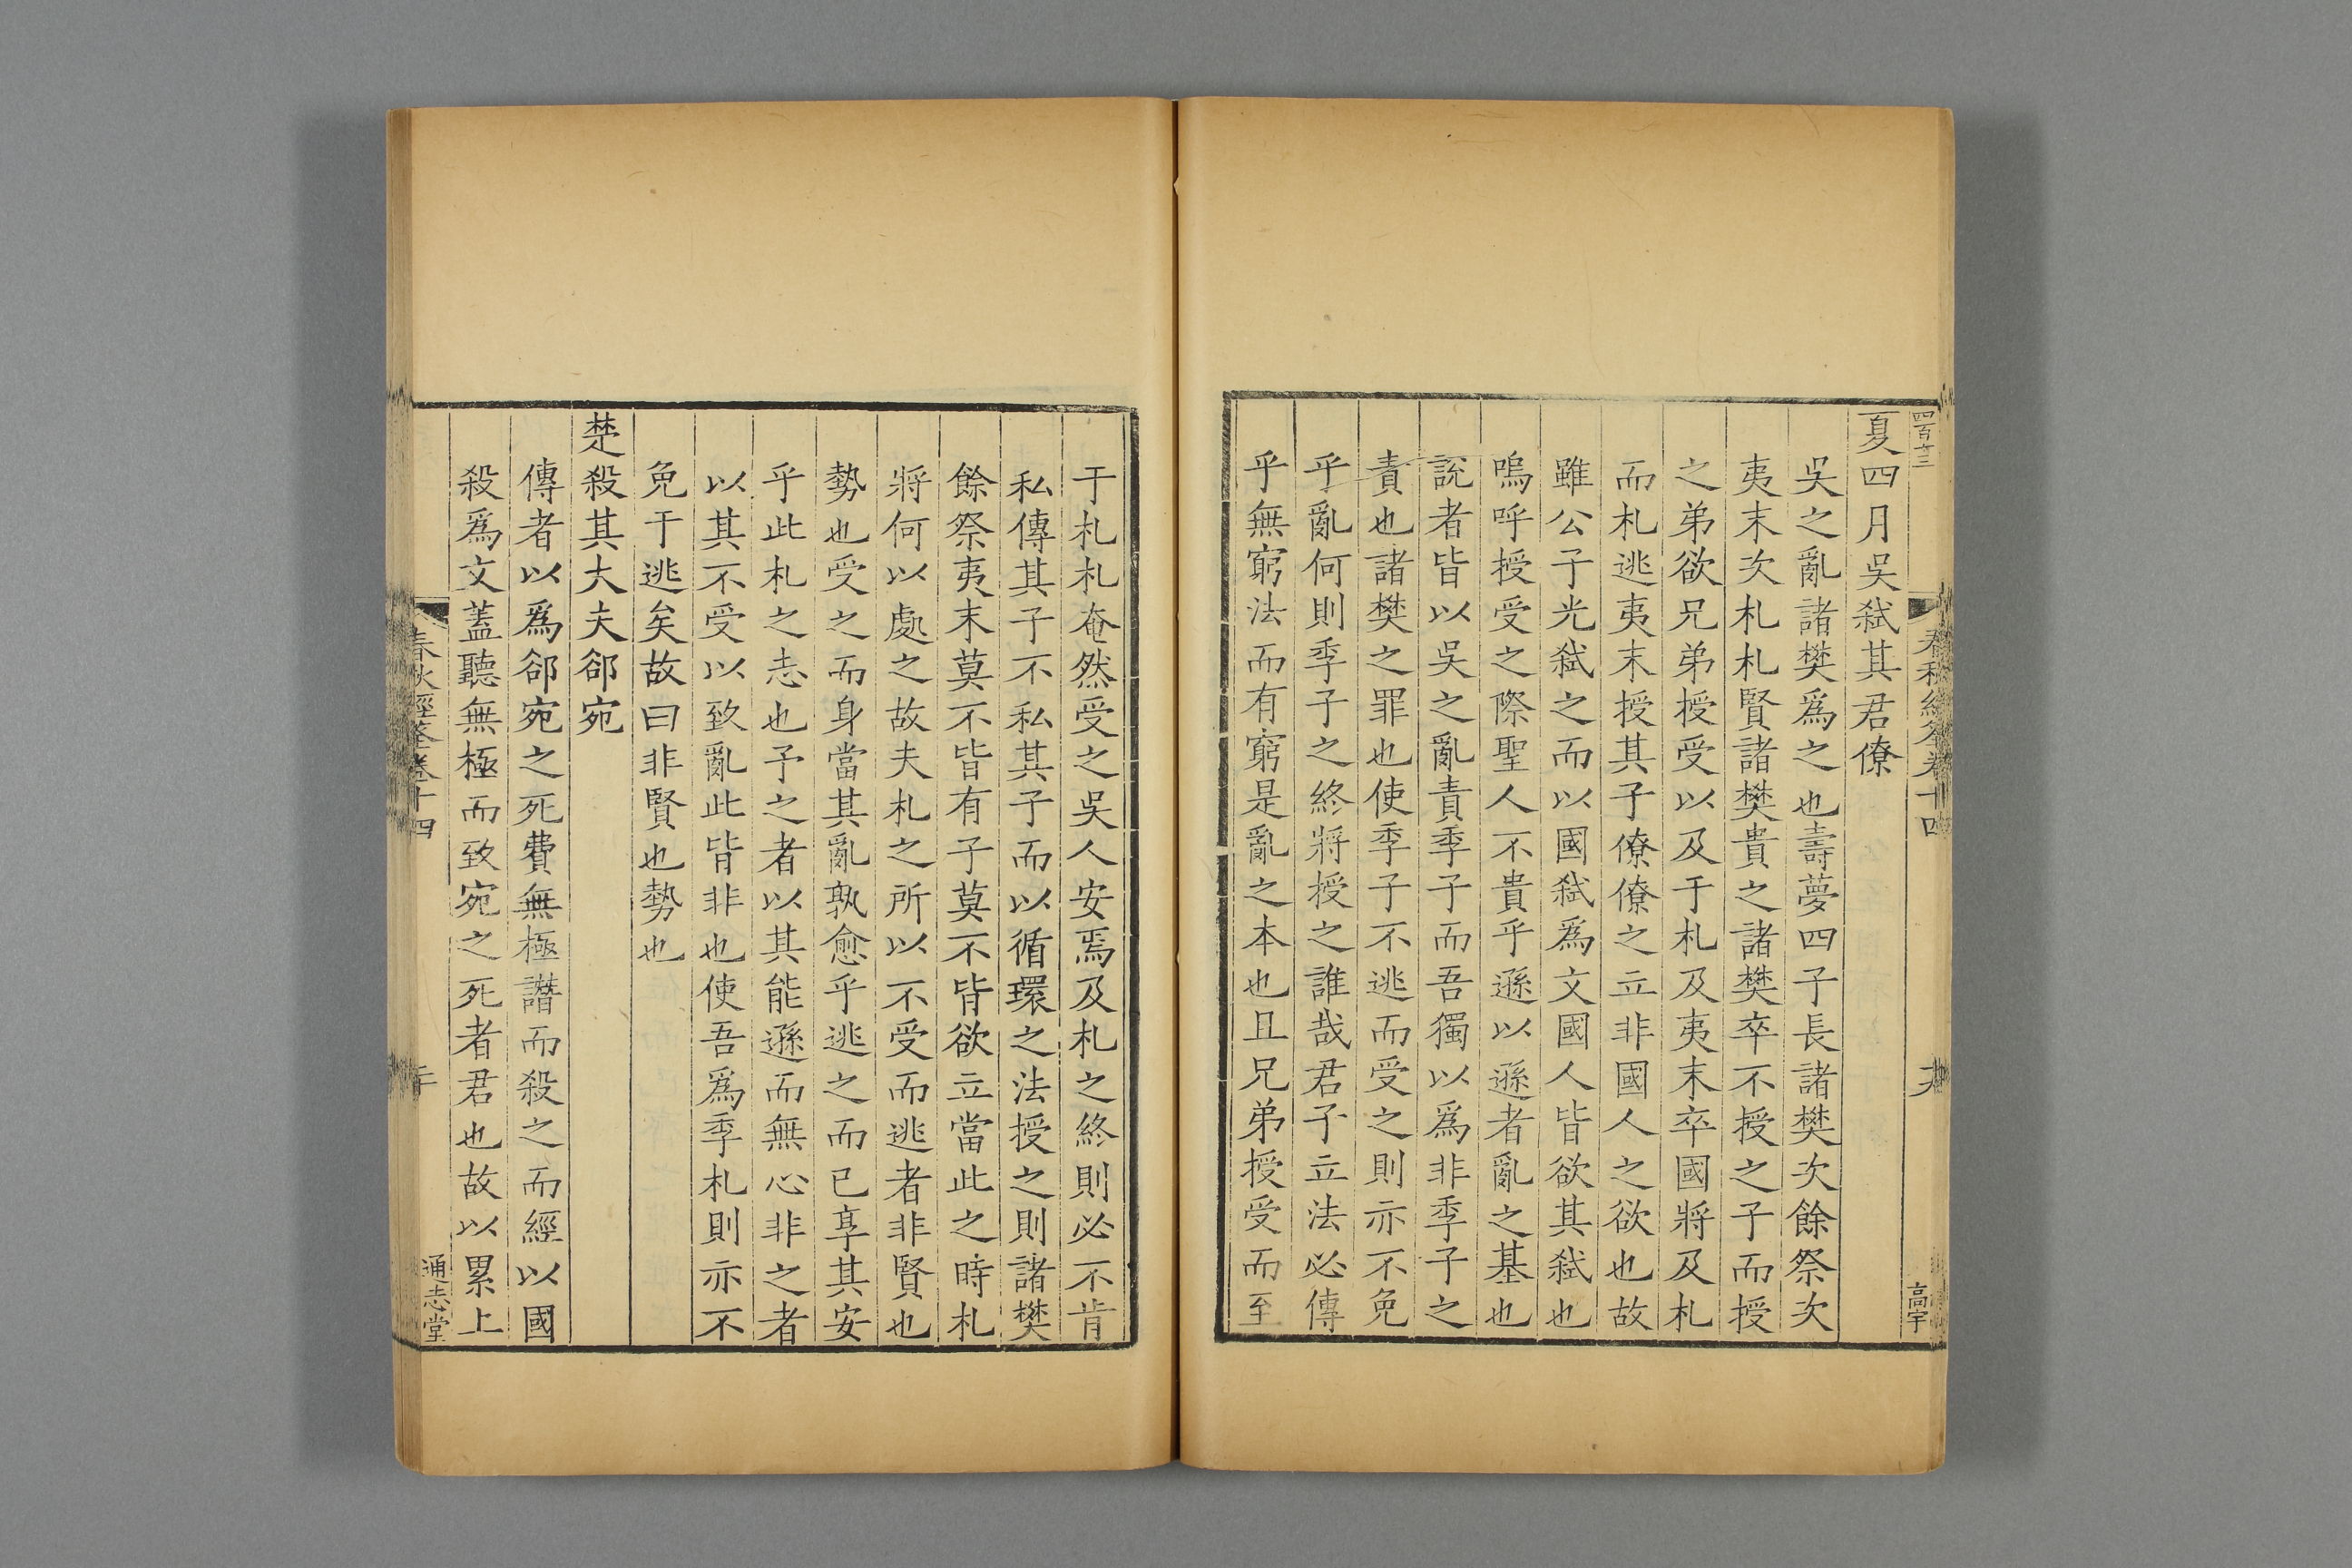 四百十三
春秋經筌卷十四
十九
高宇
夏四月吳弑其君僚
吳之亂諸樊爲之也壽夢四子長諸樊次餘祭次
夷末次札札賢諸樊貴之諸樊卒不授之子而授
之弟欲兄弟授受以及于札及夷末卒國將及札
而札逃夷末授其子僚僚之立非國人之欲也故
雖公子光弑之而以國弑爲文國人皆欲其弑也
嗚呼授受之際聖人不貴乎遜以遜者亂之基也
說者皆以吳之亂責季子而吾獨以爲非季子之
責也諸樊之罪也使季子不逃而受之則亦不免
乎亂何則季子之終將授之誰哉君子立法必傳
乎無窮法而有窮是亂之本也且兄弟授受而至
于札札奄然受之吳人安焉及札之終則必不肯
私傳其子不私其子而以循環之法授之則諸樊
餘祭夷末莫不皆有子莫不皆欲立當此之時札
將何以處之故夫札之所以不受而逃者非賢也
勢也受之而身當其亂孰愈乎逃之而已享其安
乎此札之志也予之者以其能遜而無心非之者
以其不受以致亂此皆非也使吾爲季札則亦不
免于逃矣故曰非賢也勢也
楚殺其大夫郤宛
傳者以爲郤宛之死費無極譖而殺之而經以國
殺爲文蓋聽無極而致宛之死者君也故以累上
春秋經筌卷十四
二十
通志堂